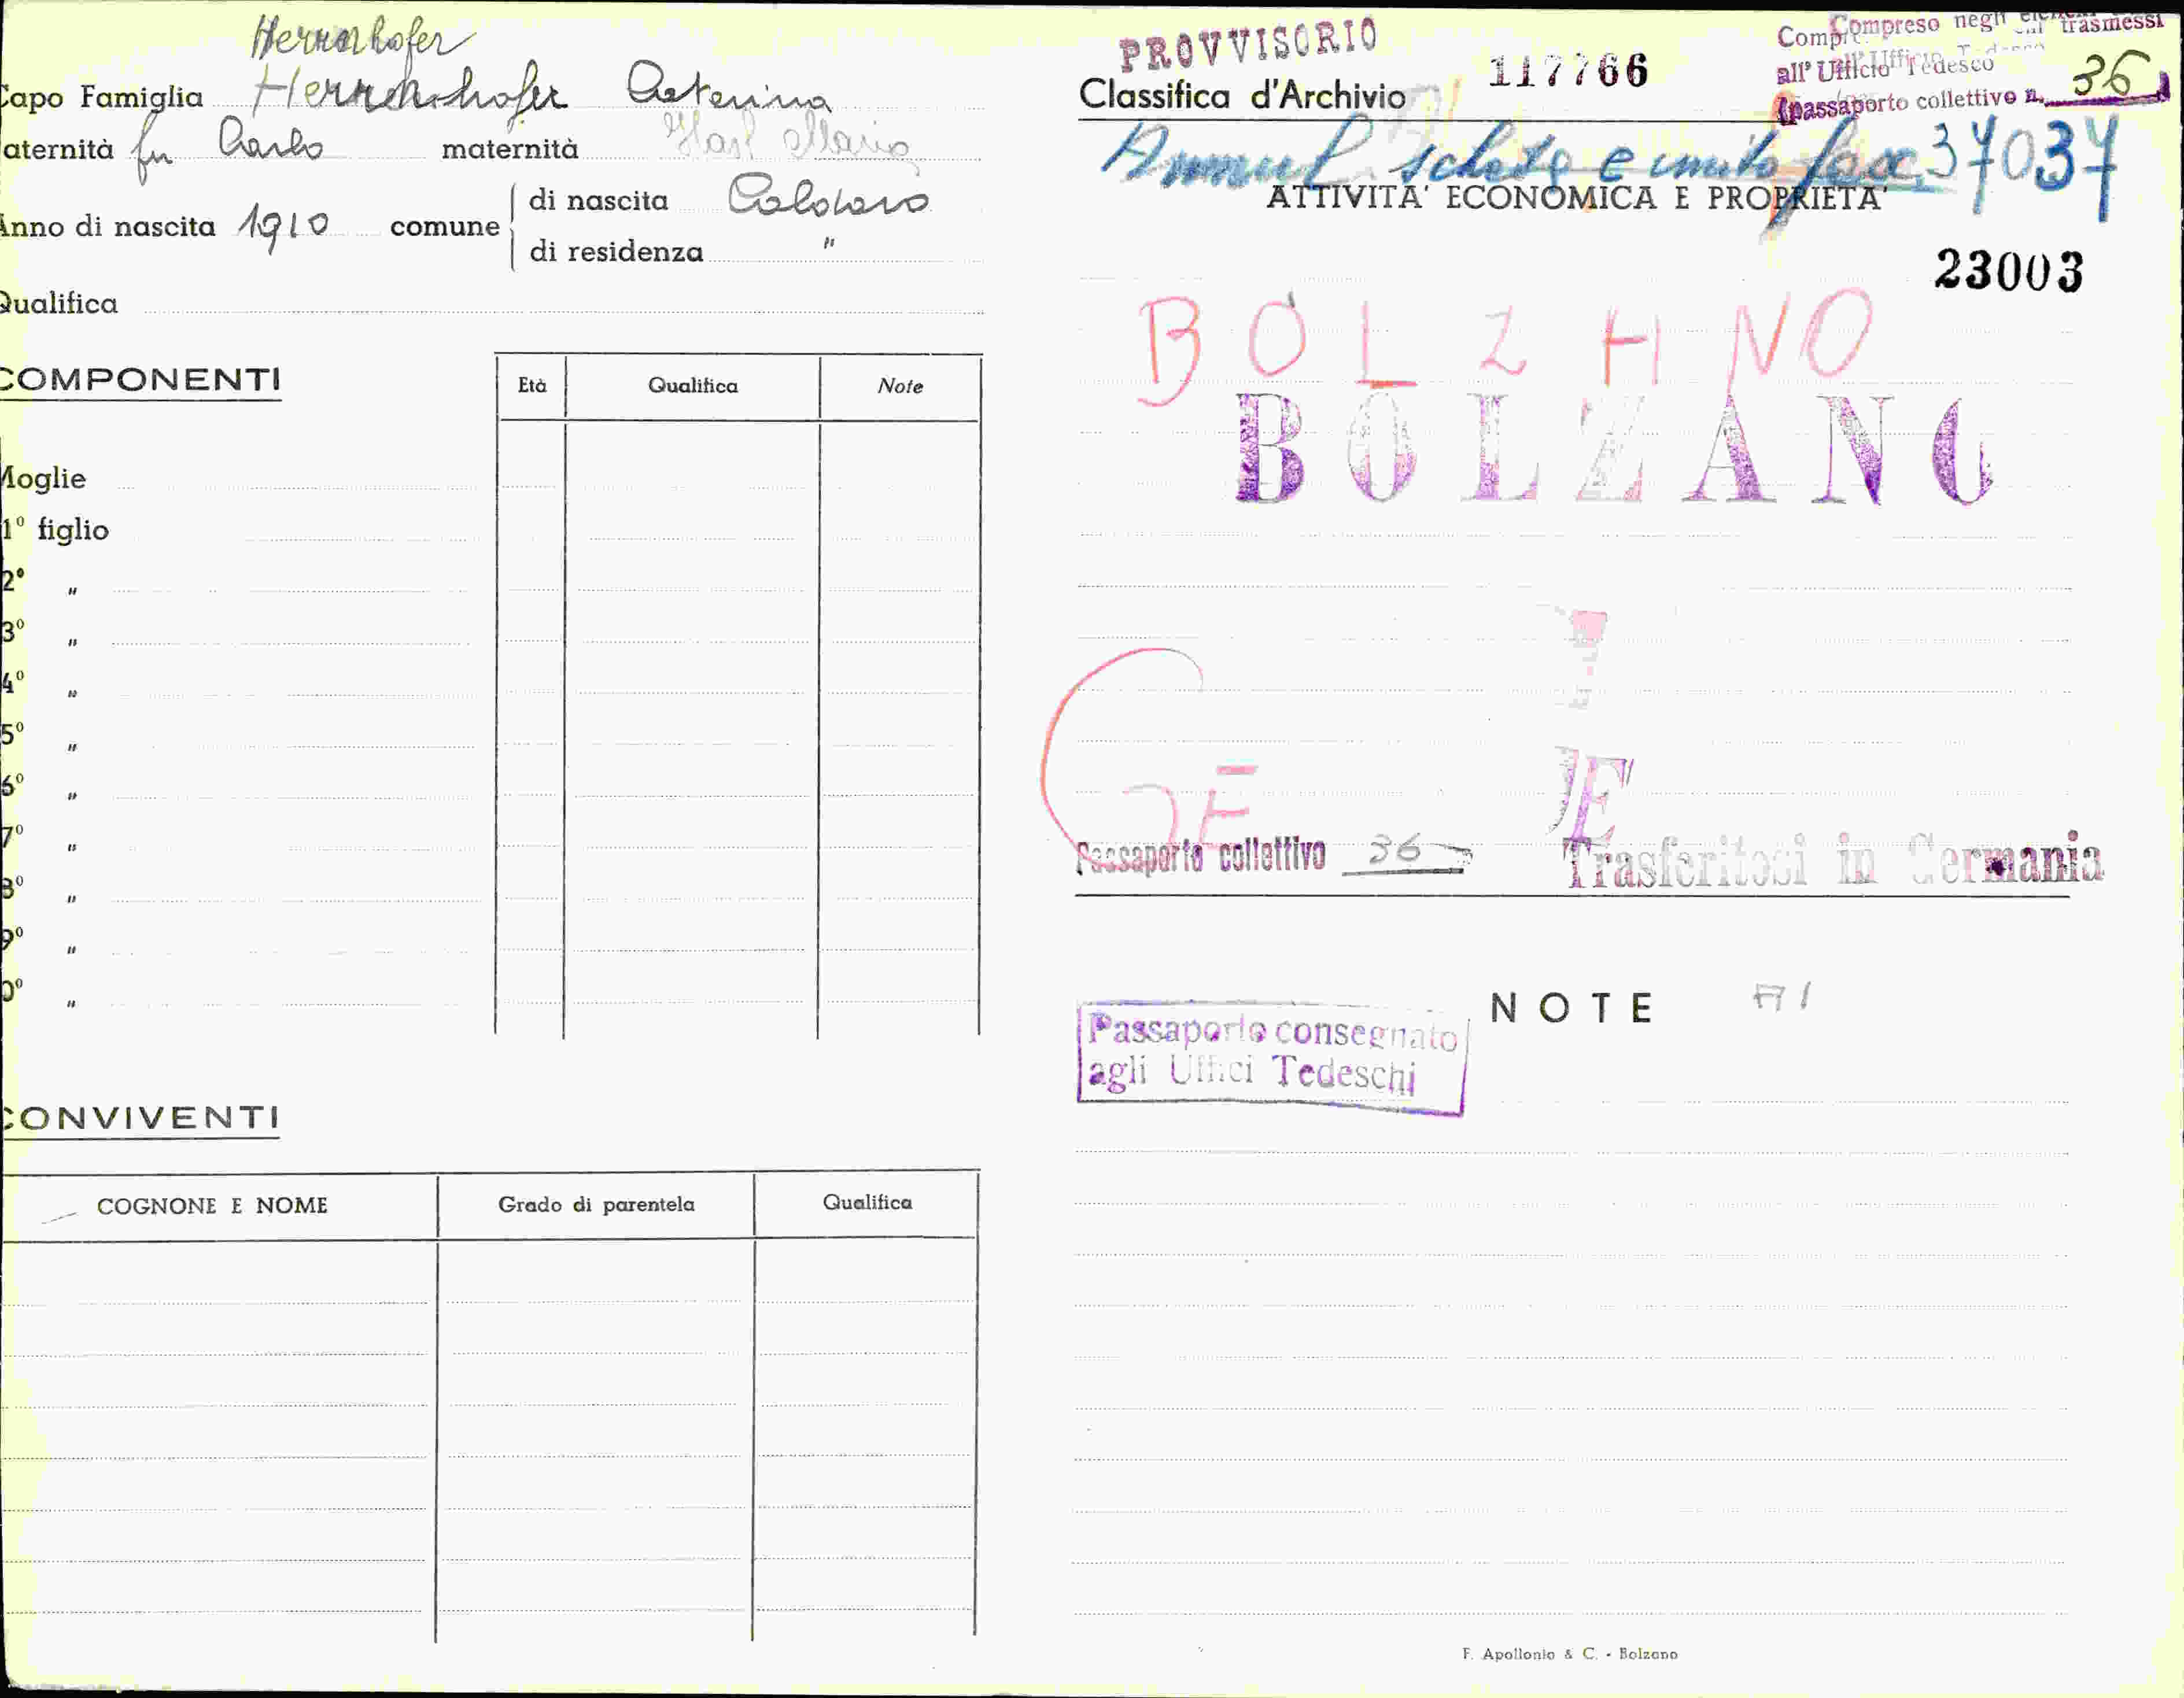 Herrnhofer
Capo Famiglia Herrnhofer Caterina
aternità fu Carlo maternità Maria
Anno di nascita 1910 comune di nascita Caldaro
di residenza "
Qualifica
COMPONENTI
Età Qualifica Note
Moglie
1º figlio
2º "
3º "
4º "
5º "
6º "
7º "
8º "
9º "
0º "
CONVIVENTI
COGNONE E NOME Grado di parentela Qualifica
PROVVISORIO
Classifica d'Archivio 117766
Compreso negli trasmessi
all' Ufficio Tedesco
(passaporto collettivo n. 36)
e unito 37037
ATTIVITA' ECONOMICA E PROPRIETA'
23003
BOLZANO
BOLZANO
Passaporto collettivo 36
Trasferitosi in Germania
NOTE
Passaporto consegnato
agli Uffici Tedeschi
F. Apollonio & C. - Bolzano